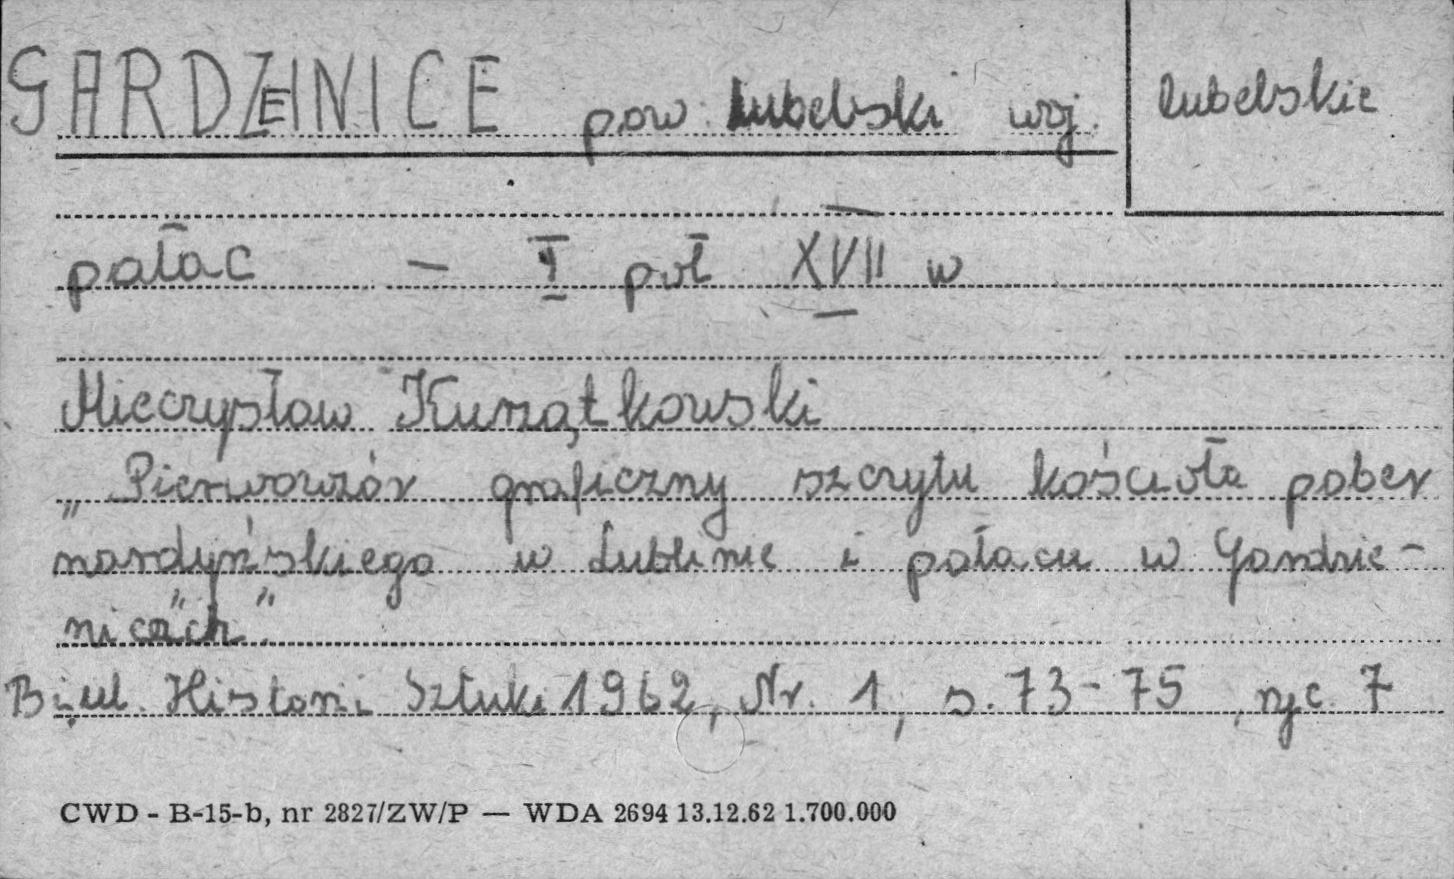 GARDZIENICE pow. lubelski woj. lubelskie
pałac - I poł XVII w
Mieczysław Kurzątkowski
„Pierwowzór graficzny szczytu kościoła pober
nardyńskiego w Lublinie i pałacu w Gardzie-
nicach".
Biul. Historii Sztuki 1962, Nr. 1, s. 73-75, ryc. 7
CWD - B-15-b, nr 2827/ZW/P — WDA 2694 13.12.62 1.700.000